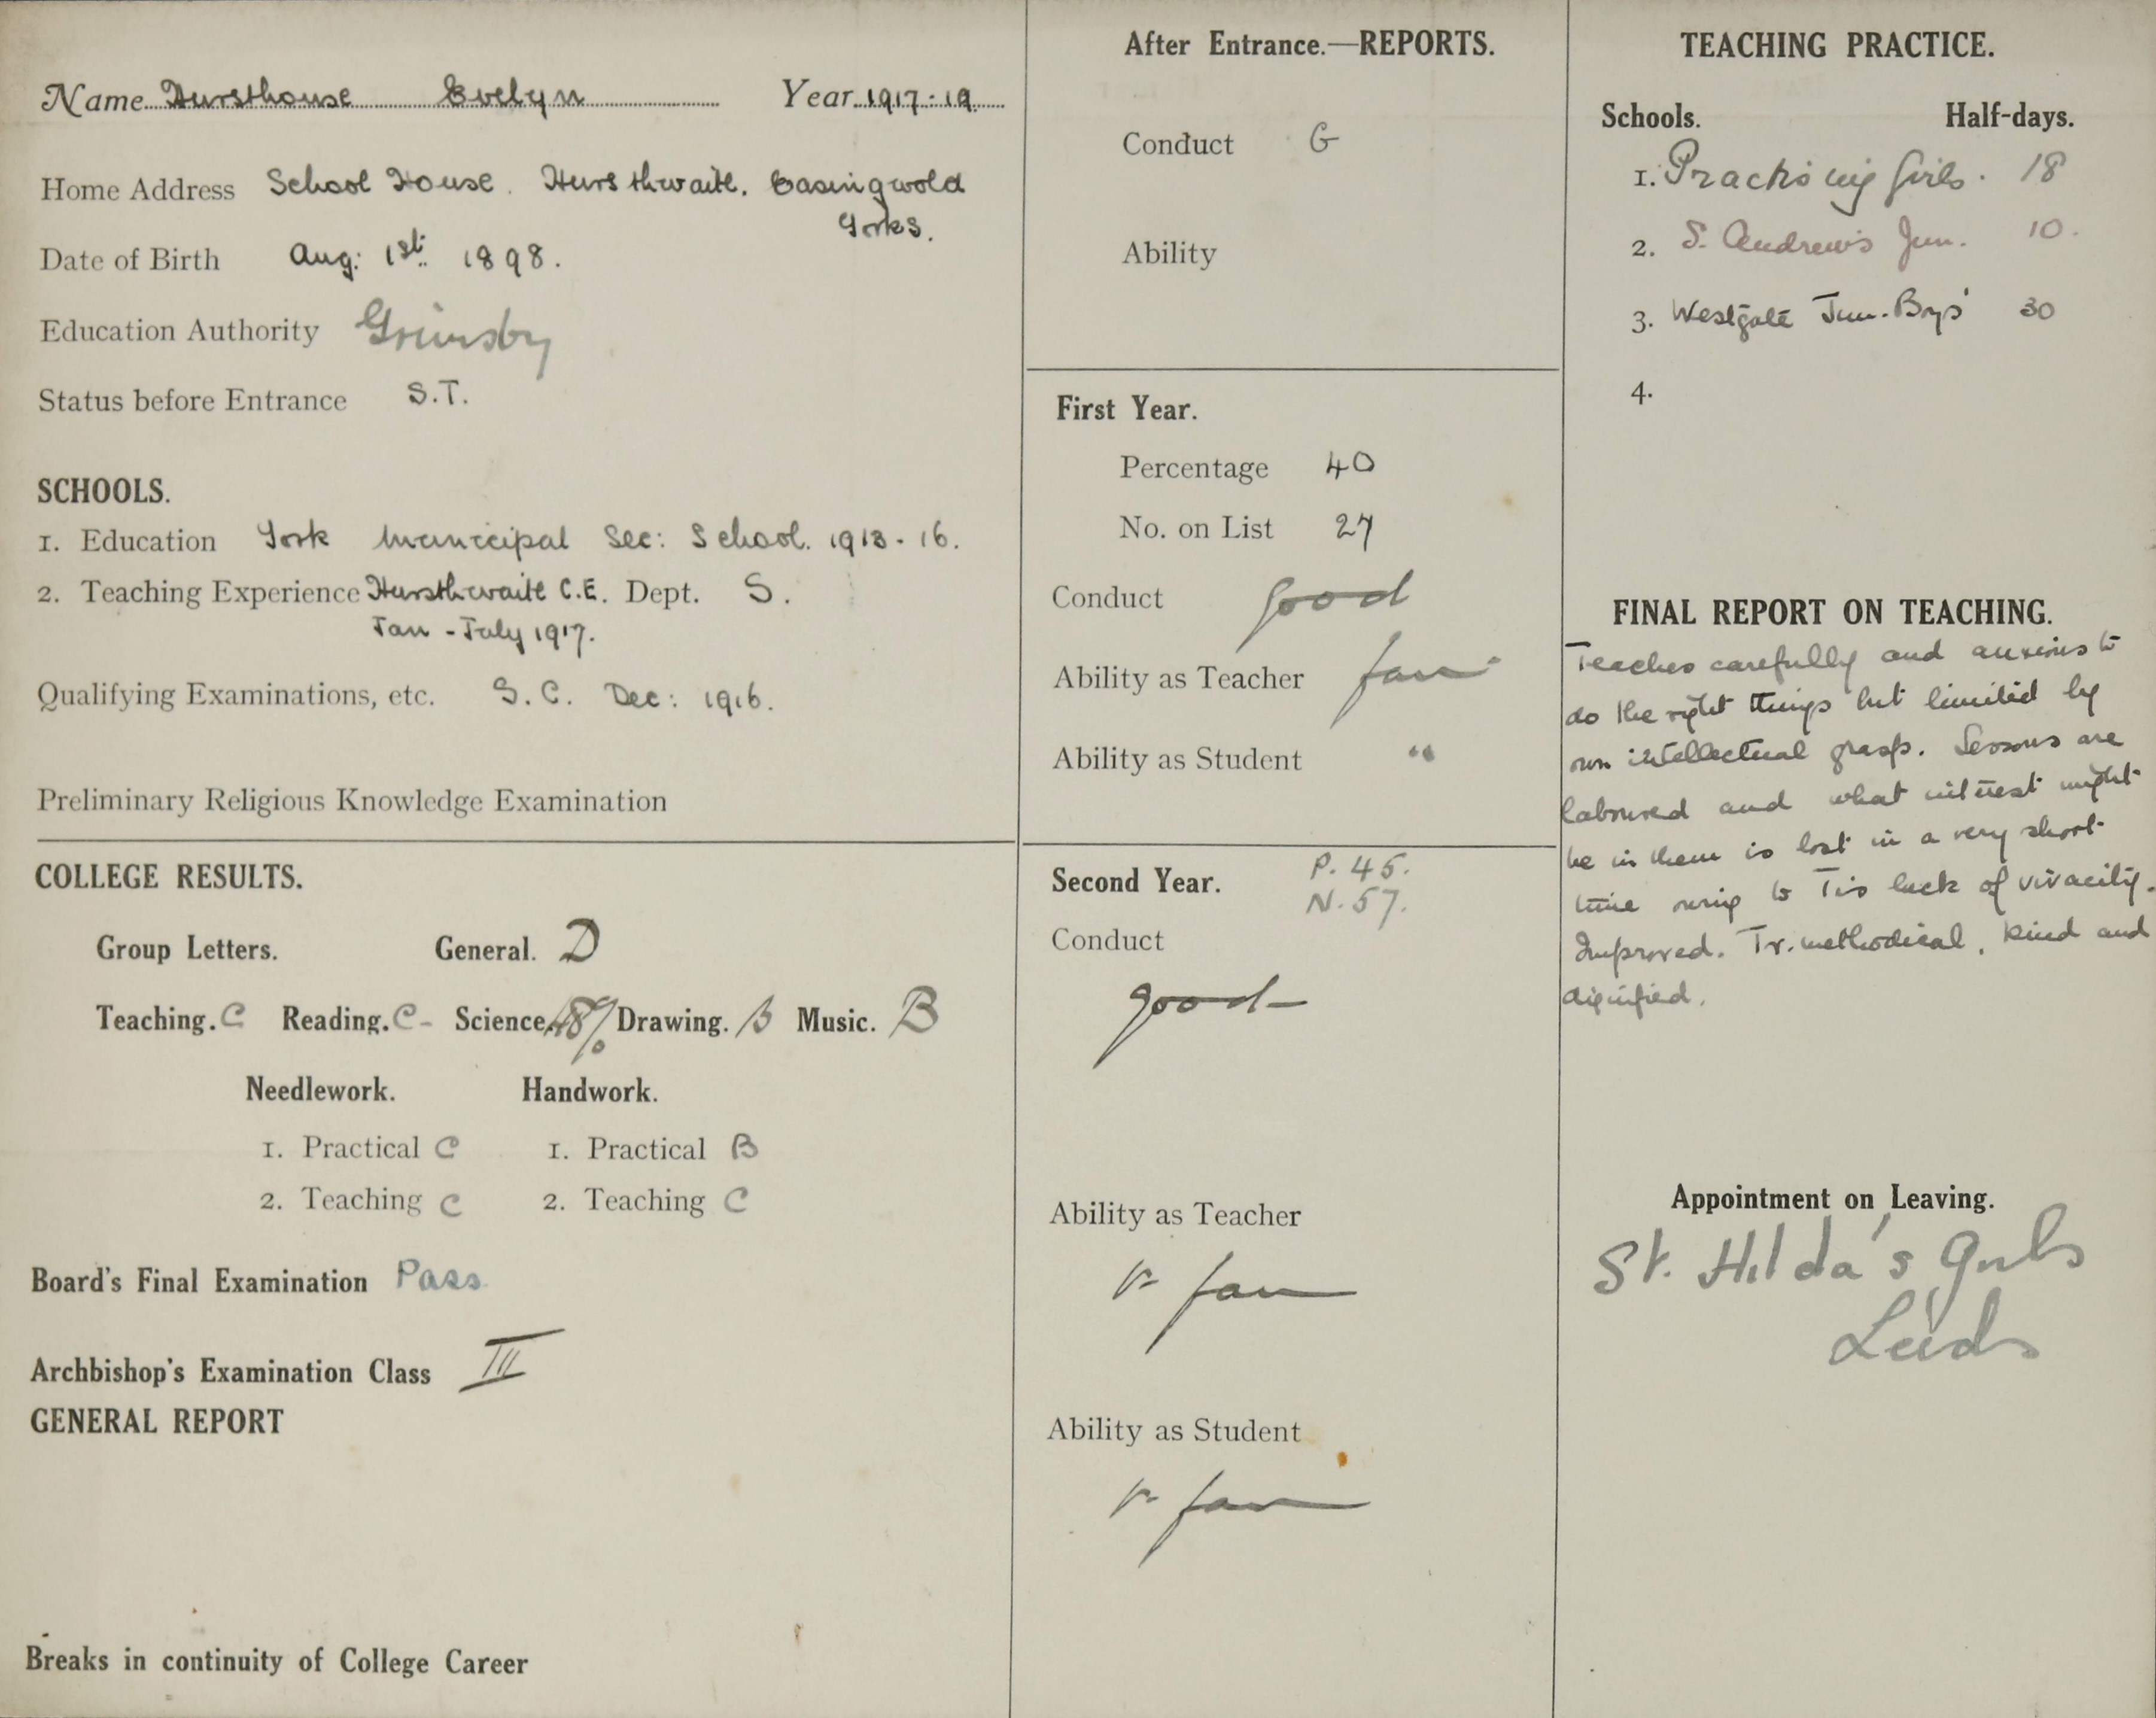 Name Hursthouse Evelyn Year 1917-19
Home Address School House. Hursthwaite. Easingwold
Yorks.
Date of Birth Aug: 1st. 1898.
Education Authority Grimsby
Status before Entrance S.T.
SCHOOLS.
1. Education York Municipal Sec: School. 1913-16.
2. Teaching Experience Hursthwaite C.E. Dept. S.
Jan - July 1917.
Qualifying Examinations, etc. S.C. Dec: 1916.
Preliminary Religious Knowledge Examination
COLLEGE RESULTS.
Group Letters. General. D
Teaching. C Reading. C- Science. 48% Drawing. B Music. B
Needlework. Handwork.
1. Practical C 1. Practical B
2. Teaching C 2. Teaching C
Board's Final Examination Pass
Archbishop's Examination Class III
GENERAL REPORT
Breaks in continuity of College Career
After Entrance.—REPORTS.
Conduct G
Ability
First Year.
Percentage 40
No. on List 27
Conduct good
Ability as Teacher fair
Ability as Student "
Second Year. P. 45.
N. 57.
Conduct
good
Ability as Teacher
v. fair
Ability as Student
v. fair
TEACHING PRACTICE.
Schools. Half-days.
1. Practising Girls. 18
2. S. Andrew's Jun. 10.
3. Westgate Jun. Boys' 30
4.
FINAL REPORT ON TEACHING.
Teaches carefully and anxious to
do the right things but limited by
own intellectual grasp. Lessons are
laboured and what interest might
be in them is lost in a very short
time owing to T's lack of vivacity.
Improved. Tr. methodical, kind and
dignified.
Appointment on Leaving.
St. Hilda's Girls
Leeds